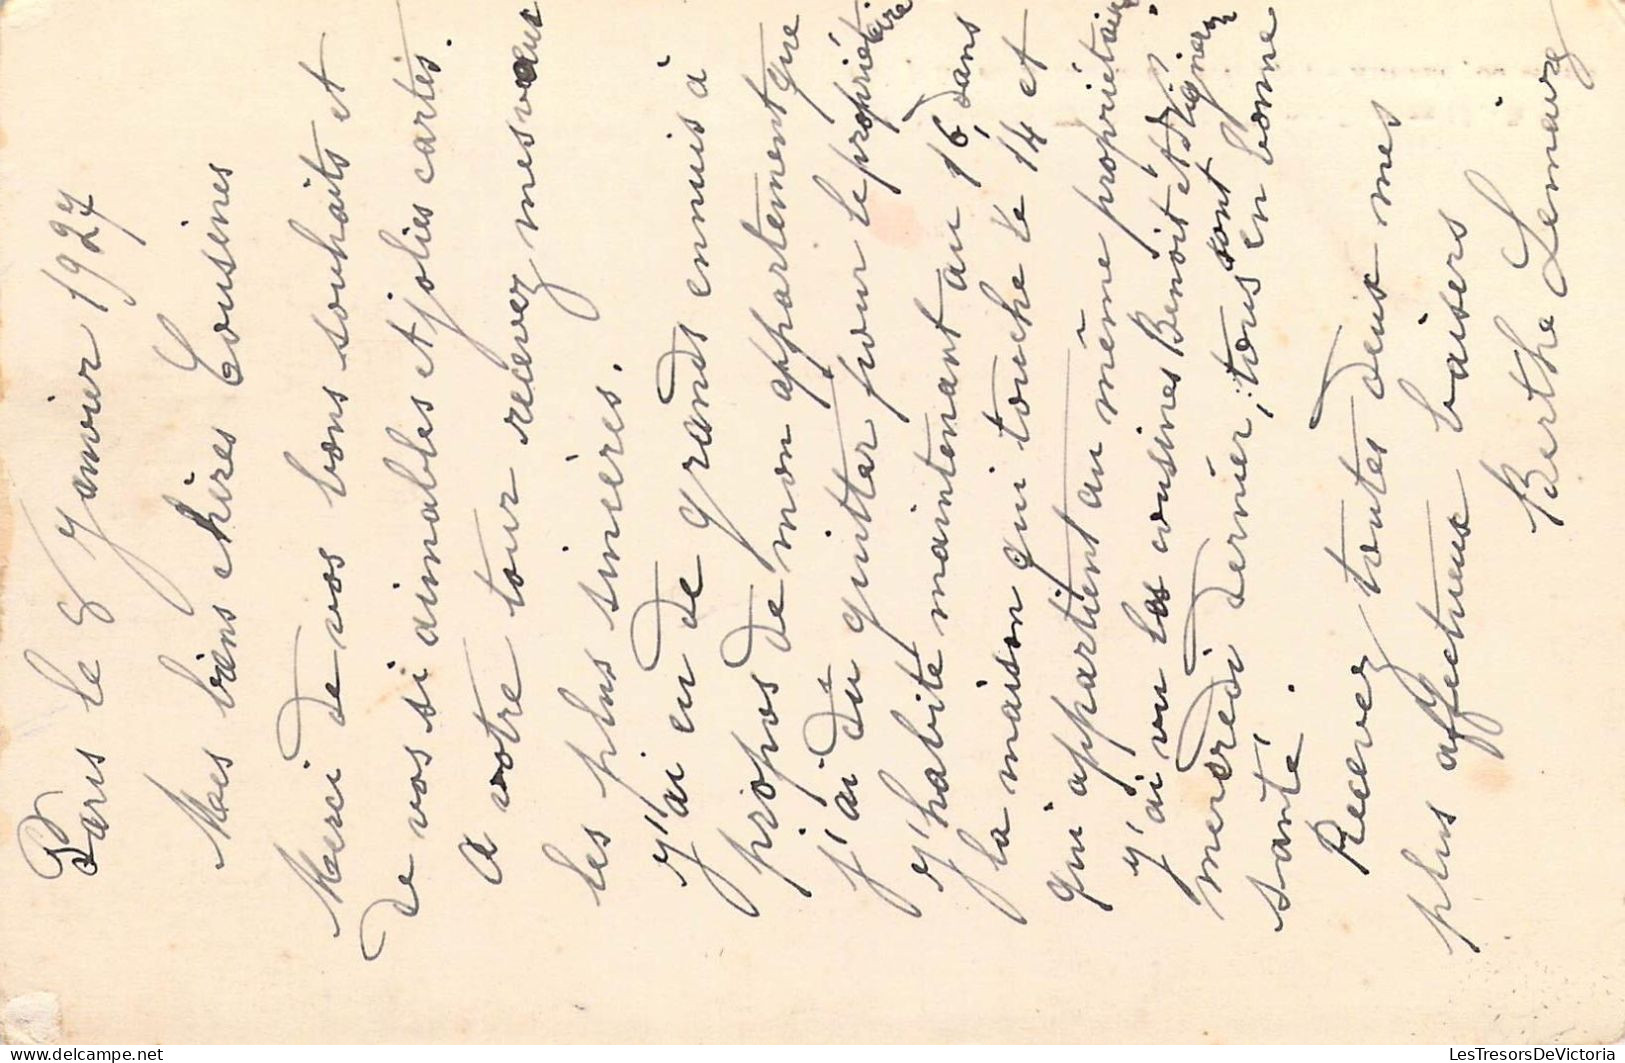 Paris le 8 Janvier 1927
Mes biens chères Cousines
Merci de vos bons souhaits et
de vos si aimables et jolies cartes.
A votre tour recevez mes vœux
les plus sincères.
J'ai eu de grands ennuis à
propos de mon appartement que
j'ai dû quitter pour le propriétaire
J'habite maintenant au 16, dans
la maison qui touche le 14 et
qui appartient au même propriétaire.
J'ai vu les cousines Benoit et
mercredi dernier, tous sont en bonne
santé.
Recevez toutes deux mes
plus affectueux baisers
Berthe
www.delcampe.net
LesTresorsDeVictoria